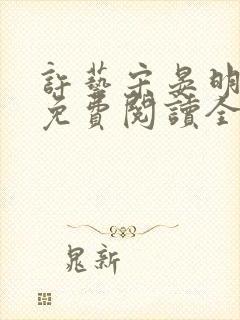 許藝宋晏明
免費閱讀全
晁新